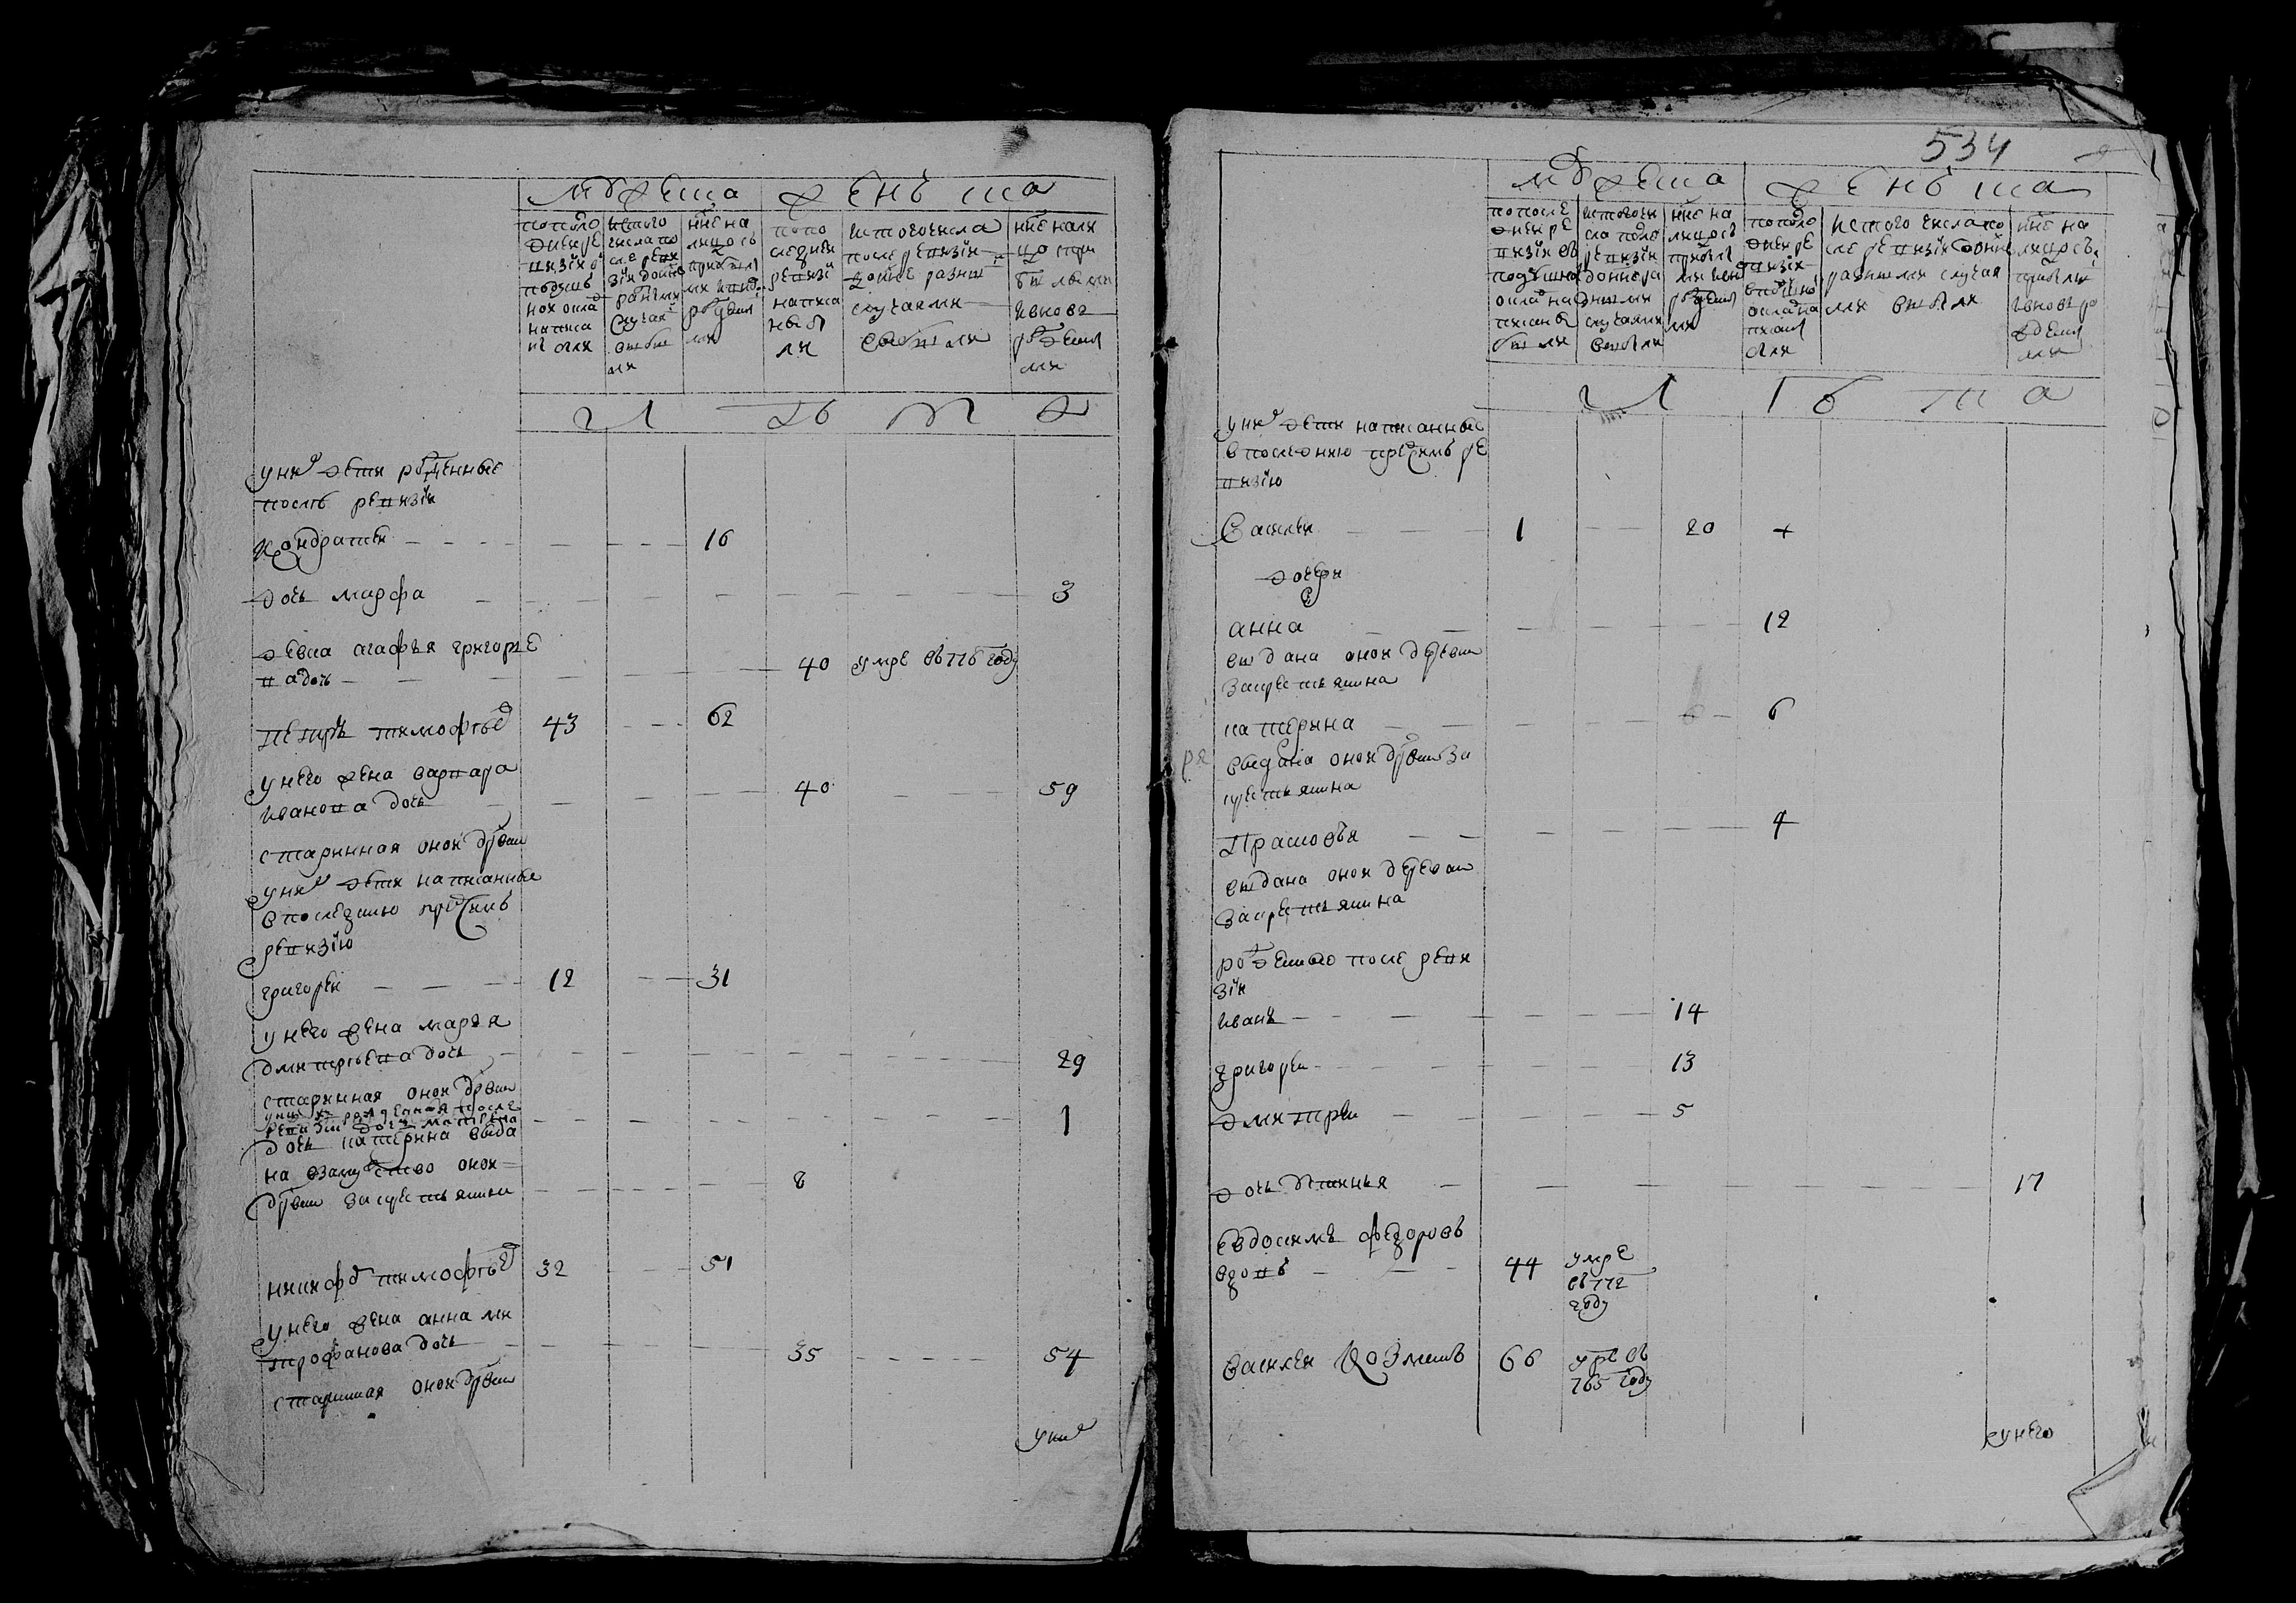 мужеска женъска
по после
дней ре
визіи в
подуш
ной окла
написа
ны были
ис того
числа по
сле реви
зіи до ныне
разными
случаи
выбы
ли
ныне на
лицо съ
прибылы
ми и
рожденны
ми
по по
следней
ревизіи
написа
ны бы
ли
ис того числа
после ревизіи
до ныне разны
случаями
выбыли
ныне нали
цо с при
былыми
и вновь
рожденны
ми
л ѣ т а
у них дети рожденные
после ревизіи
Кондратей 16
дочь марфа 3
девка агафья григорье
ва дочь 40 умре в 776 году
петръ тимофеев 43 62
у него жена варвара
иванова дочь 40 59
старинная оной дрвни
у них дети написанные
в последнюю пред симъ
ревизію
григорей 12 31
у него жена марья
дмитреева дочь 29
старинная оной дрвни
у них рожденная после
ревизіи дочь матрена 1
дочь катерина выда
на взамужство оной
дрвни за крестьянина 8
никифор тимофеев 32 51
у него жена анна ми
трофанова дочь 35 54
старинная оной дрвни
у них
534
мужеска женъска
по после
дней ре
визіи въ
подушной
оклад на
писаны
были
ис того чи
сла после
ревизіи
до ныне ра
зными
случаями
выбыли
ныне на
лицо съ
прибылы
ми и вновь
рожденны
ми
по после
дней ре
визіи
в подушной
оклад на
писаны
были
ис того числа по
сле ревизіи до ныне
разными случая
ми выбыли
ныне на
лицо съ
прибылы
и вновь ро
жденны
ми
л ѣ т а
у них дети написанные
в последнюю пред симъ ре
визію
Василей 1 20 +
дочери
анна 12
выдана оной деревни
за крестьянина
катерина 6
выдана оной дрвни за
крестьянина
Прасковья 4
выдана оной деревни
за крестьянина
рожденные после реви
зіи
иванъ 14
григорей 13
дмитрей 5
дочь 17
евдокимъ федоровъ
вдовъ 44 умре
въ 772
году
василей Козминъ 66 умре въ
765 году
у него